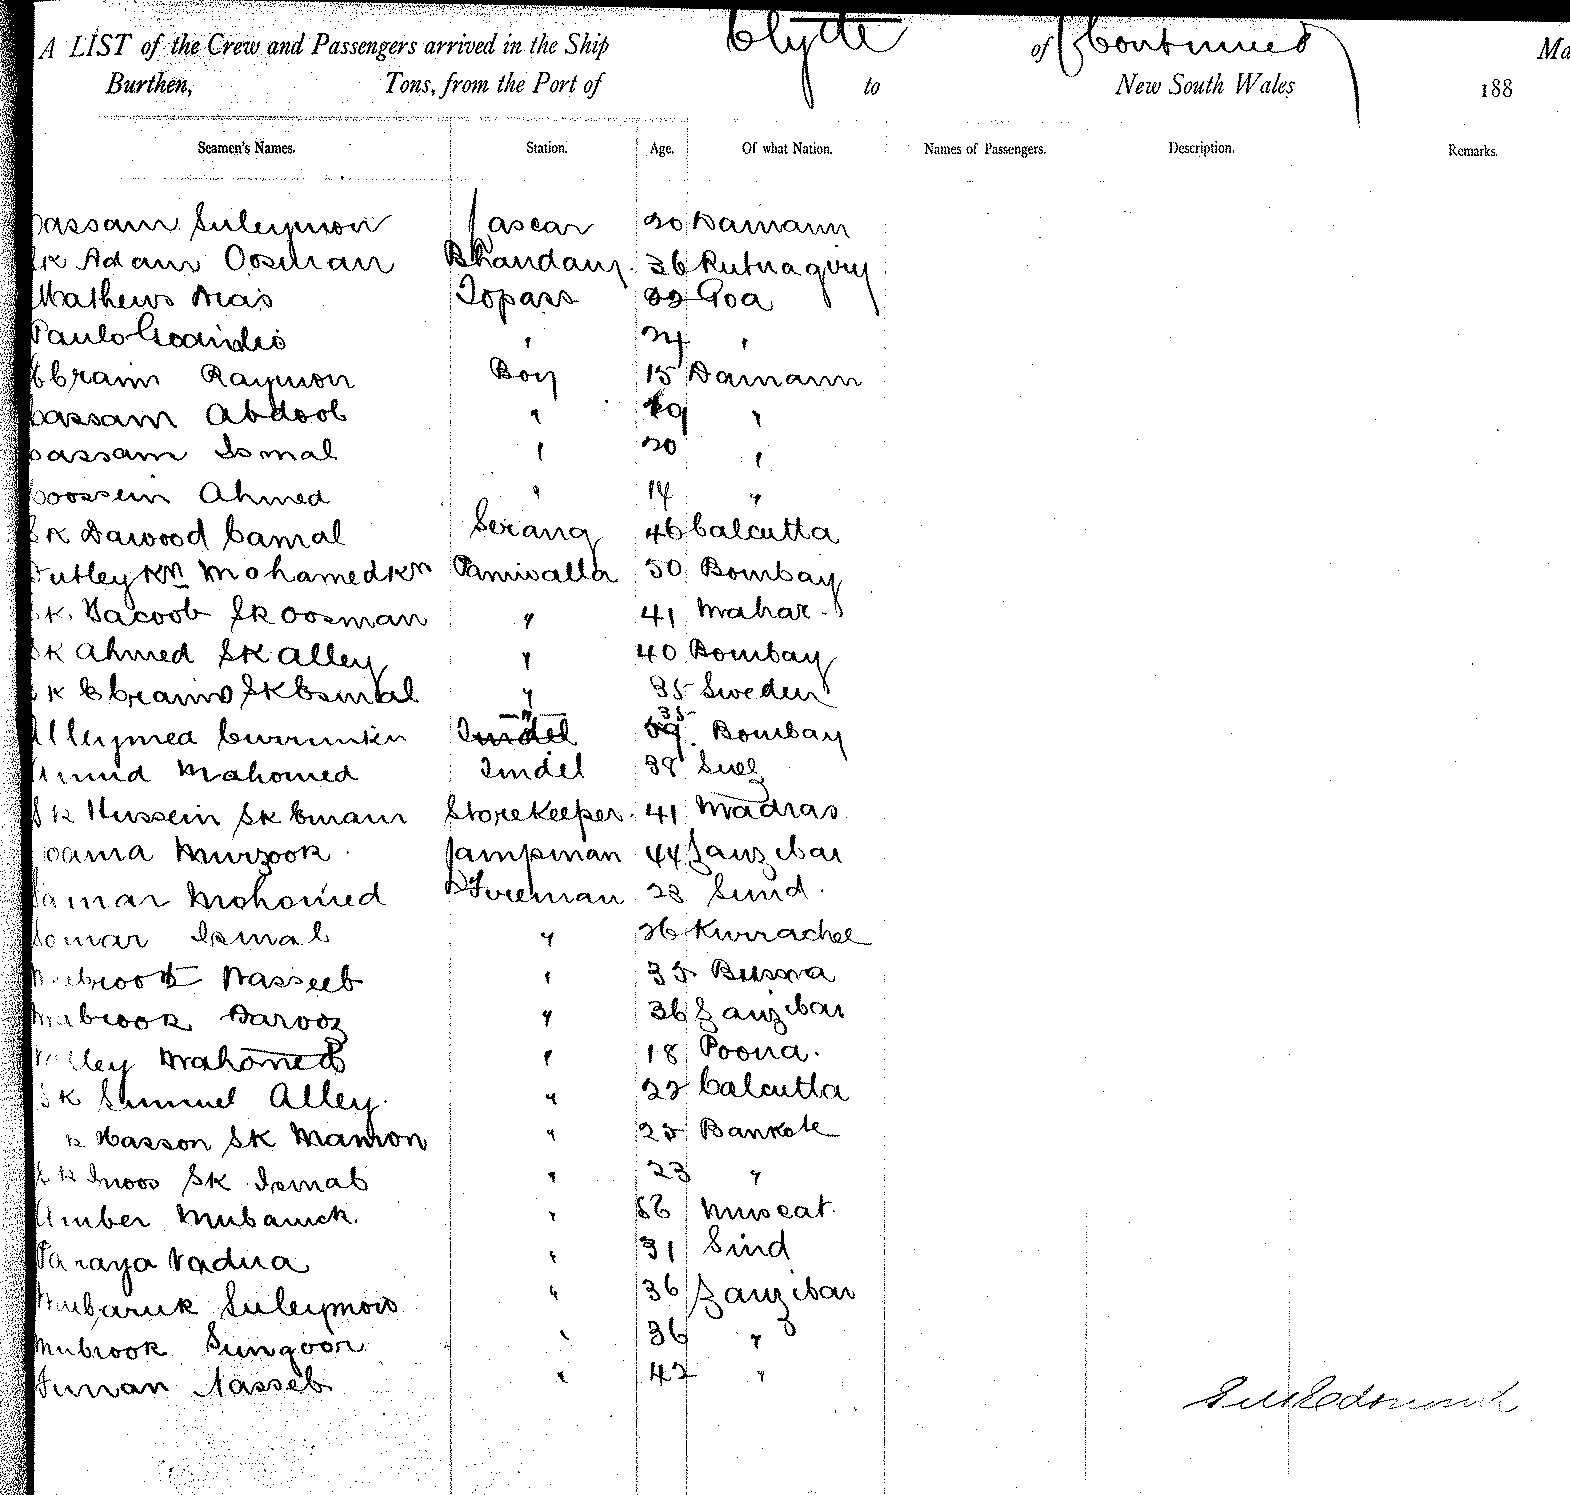 A LIST of the Crew and Passengers arrived in the Ship Clyde of (Continued) Ma
Burthen, Tons, from the Port of to New South Wales 188
Seamen's Names. Station. Age. Of what Nation. Names of Passengers. Description. Remarks.
Cassam Suleymon Lascar 20 Damann
Sk Adam Oosman Bhandary 36 Rutnagiry
Mathews Dias Topass Goa
Paulo 24 "
Ebraim Raymon Boy 15 Damann
Cassam Abdool " 19 "
Cassam Ismal " 20 "
Goossein Ahmed " 14 "
Sk Dawood Camal Serang 46 Calcutta
Futley Kn Mohamed Kn Paniwalla 50 Bombay
Sk. Yacoob Sk Oosman " 41 Mahar.
Sk Ahmed Sk Alley " 40 Bombay
Sk Ebraim Sk Esmal " 35 Sweden
Alleymed " 35 Bombay
Mahomed Tindel 38 Suez
Sk Hussein Sk Emam Storekeeper. 41 Madras
Joama Murzook Lampman 44 Zanzibar
Samar Mohomed Fireman 23 Scind.
Somar Ismal " 26 Kurrachee
Mubrook Nasseeb " 35 Busora
Mubrook Barooz " 36 Zanzibar
Mahomed " 18 Poona.
Sk Sumuel Alley. " 22 Calcutta
Sk Hasson Sk Mamon " 25 Bankote
Sk Inoos Sk Ismal " 23 "
Amber Mubaruck. " Muscat.
Naraya Vadua " 31 Sind
Mubaruk Suleymon " 36 Zanzibar
Mubrook Sungoor " 36 "
Juman Nasseb " 42 "